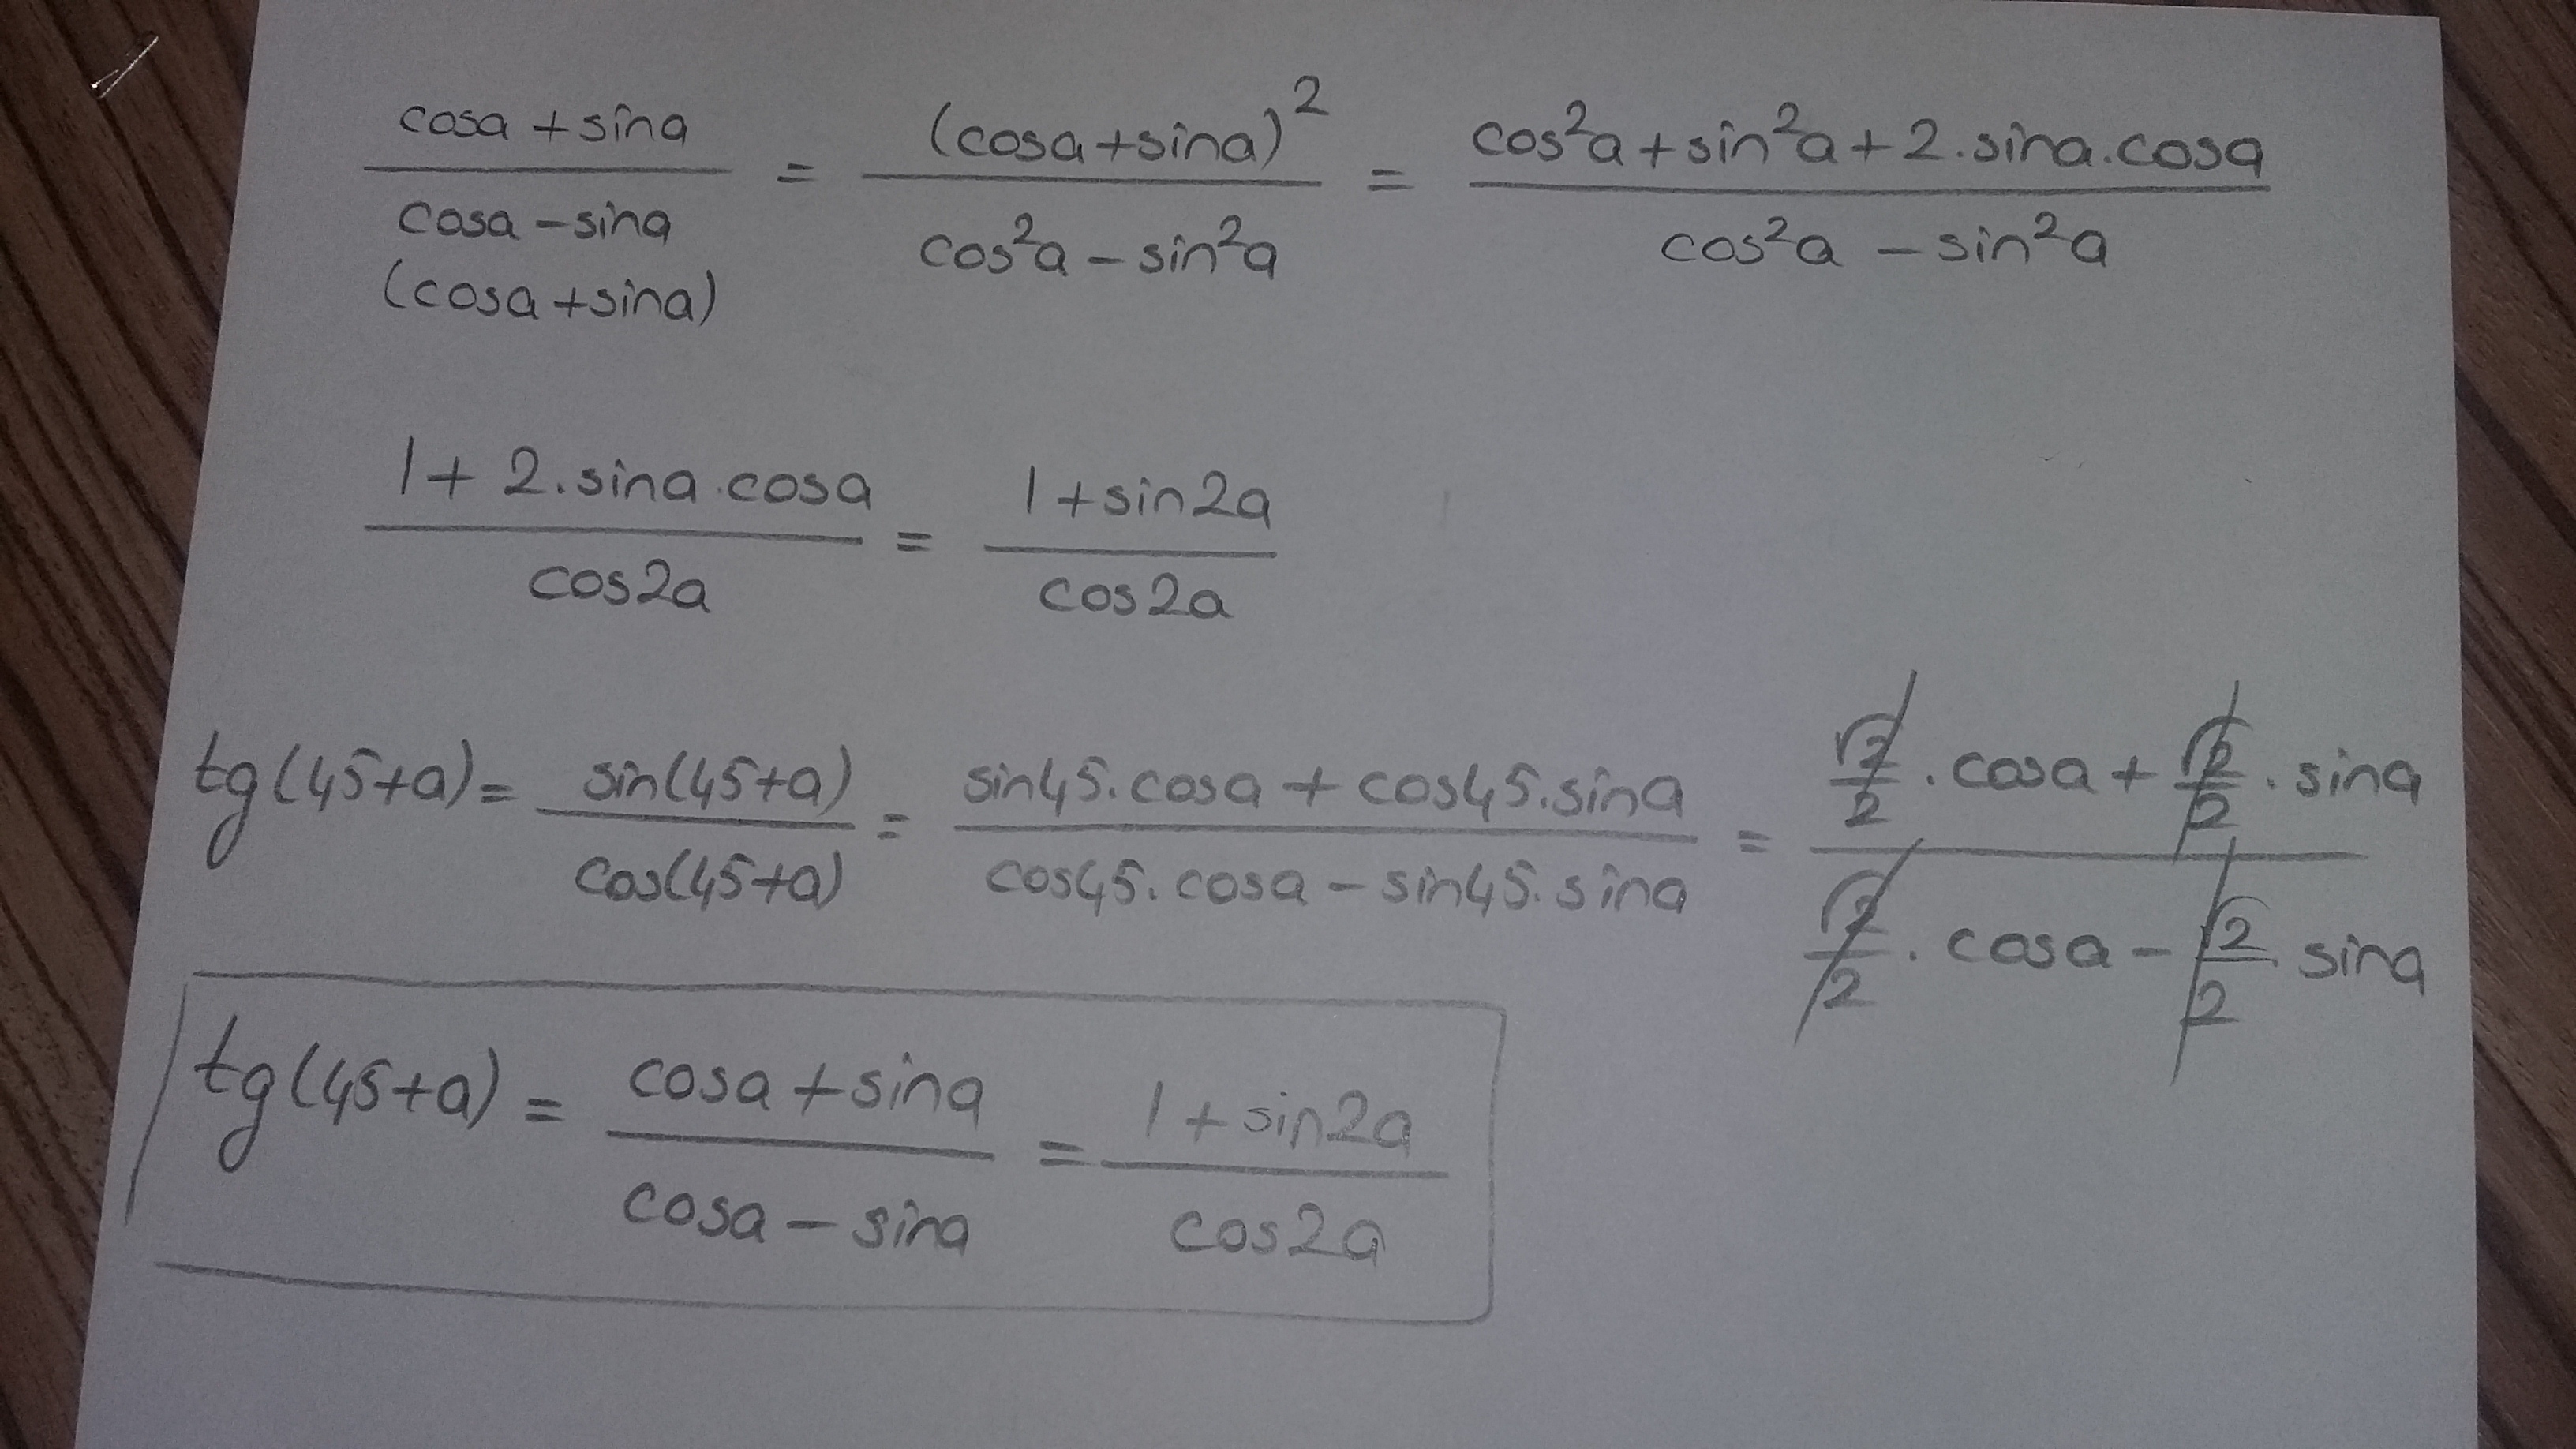 cosa + sina / cosa - sina (cosa + sina) = (cosa + sina)² / cos²a - sin²a = cos²a + sin²a + 2.sina.cosa / cos²a - sin²a
1 + 2.sina.cosa / cos2a = 1 + sin2a / cos2a
tg(45+a) = sin(45+a) / cos(45+a) = sin45.cosa + cos45.sina / cos45.cosa - sin45.sina = √2/2 . cosa + √2/2 . sina / √2/2 . cosa - √2/2 . sina
tg(45+a) = cosa + sina / cosa - sina = 1 + sin2a / cos2a